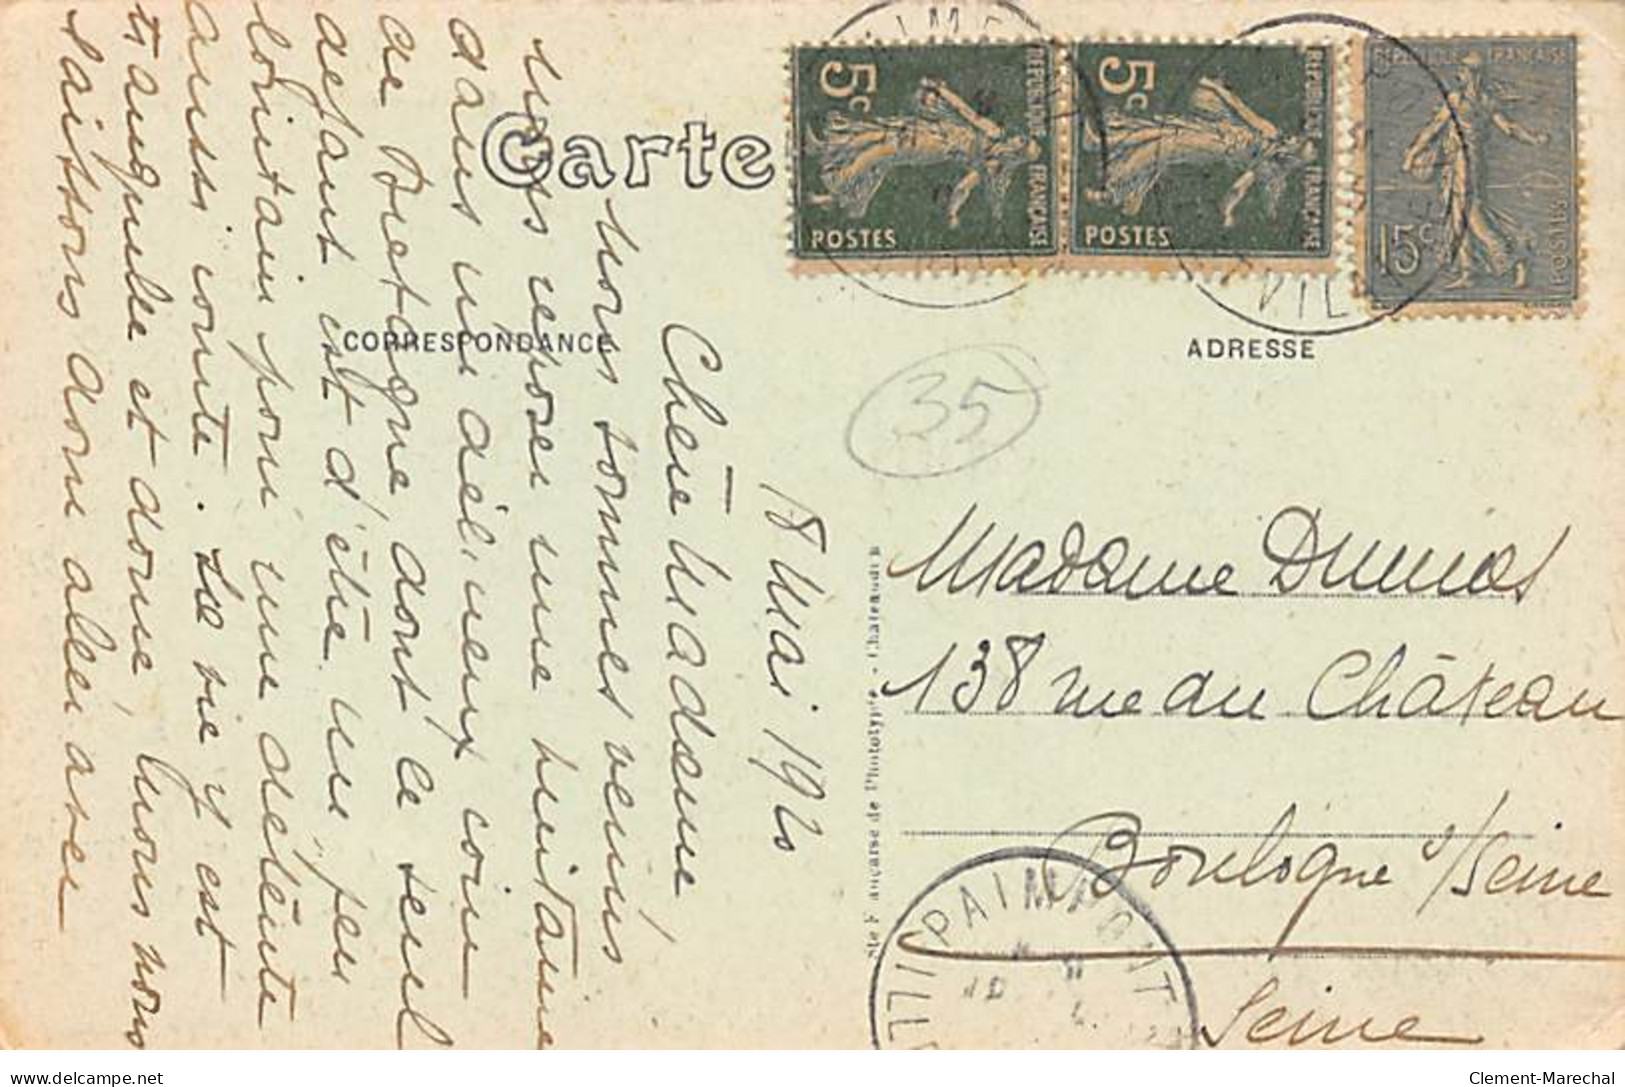 Carte
CORRESPONDANCE
ADRESSE
5c
POSTES
REPUBLIQUE FRANÇAISE
5c
POSTES
REPUBLIQUE FRANÇAISE
REPUBLIQUE FRANÇAISE
15c
POSTES
35
18 Mai 1920
Chère Madame
Nous sommes venus
nous reposer une huitaine
dans un délicieux coin
de Bretagne dont le seul
défaut est d'être un peu
lointain pour une détente
aussi courte. La vie y est
tranquille et donne, nous nous
laissons donc aller avec
Madame Dumas
138 rue du Château
Boulogne s/Seine
Seine
Sté Française de Phototypie. - Chateaudun
PAIMPONT
Clement-Marechal